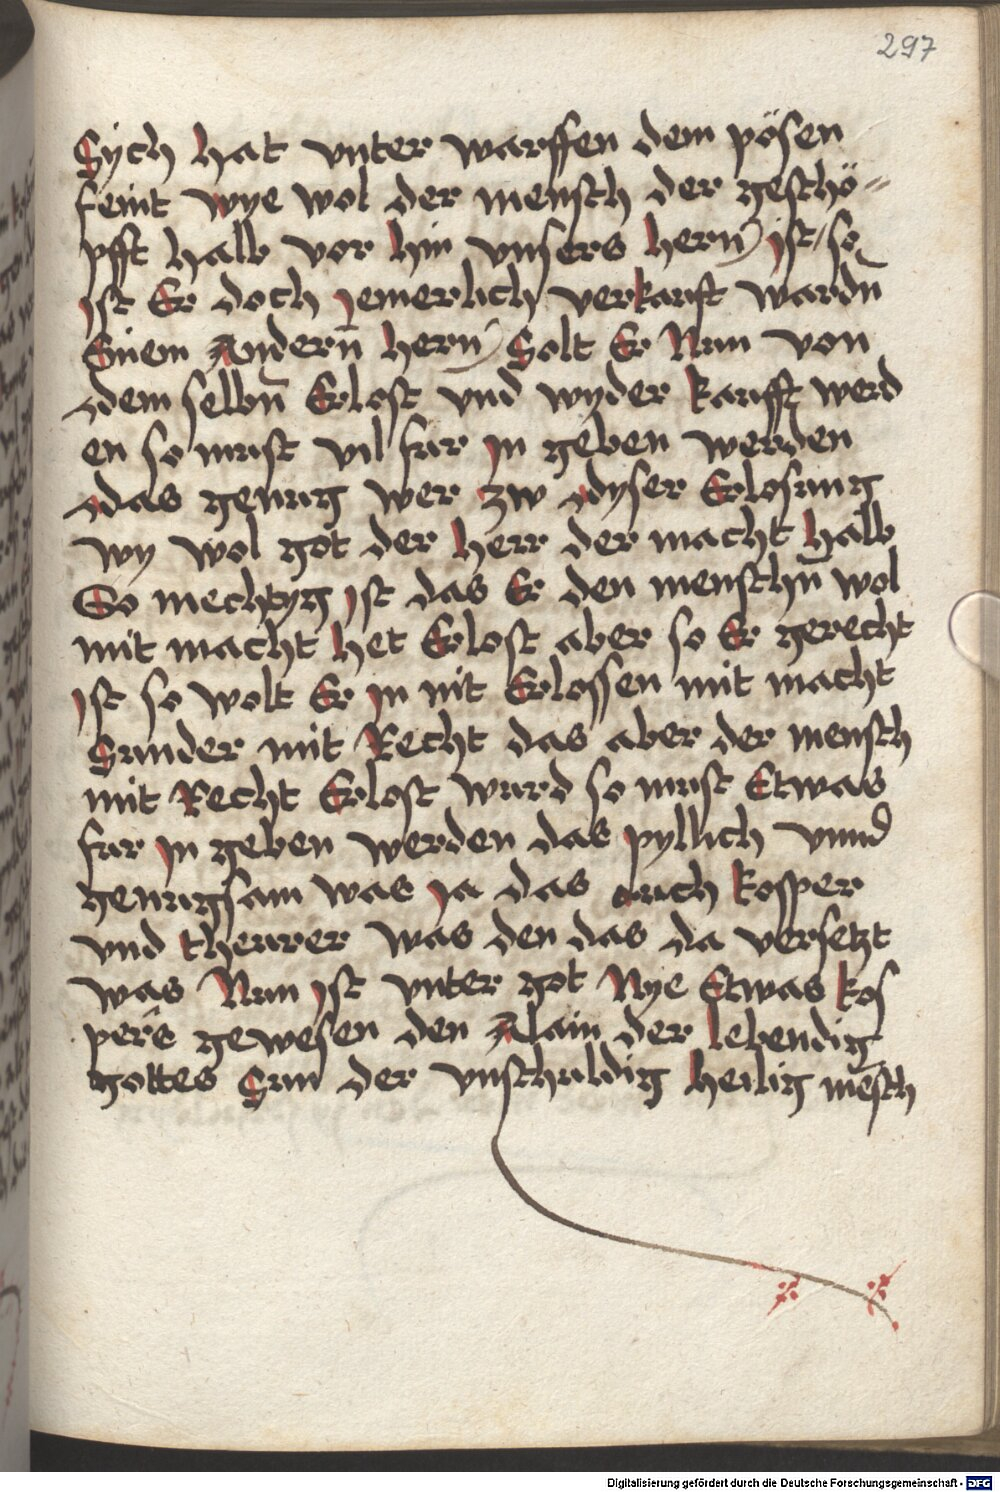 297
Sych hat vnter warffen dem pösen
feint wye wol der mensch der geschö=
pfft halb vor hin vnsers hern ist / so
ist Er doch jemerlich verkaufft wardn̄
Einem Andern̄ hern Solt Er Nun von
dem selbn̄ Erlost vnd wyder kaufft werd
en so must vil fur in geben werden
das genug wer zw dyser Erlosung
wy wol got der herr der macht halb
So mechtyg ist das Er den menschn̄ wol
mit macht het Erlost aber so Er gerecht
ist so wolt Er in nit Erlossen mit macht
Sunder mit Recht das aber der mensch
mit Recht Erlost wurd so must Etwas
fur in geben werden das pyllich vnnd
genugsam was ja das auch kosper
vnd theurer was den das da versetzt
was Nun ist vnter got Nye Etwas kos
pers gewesen den Alain der lebendig
gottes Sun der vnschuldig heilig mēsch
Digitalisierung gefördert durch die Deutsche Forschungsgemeinschaft - DFG